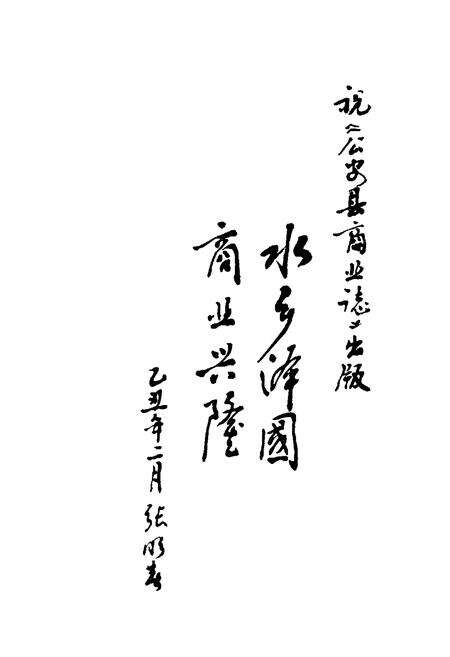 祝《公安县商业誌》出版
水乡泽國
商业兴隆
乙丑年二月张明春